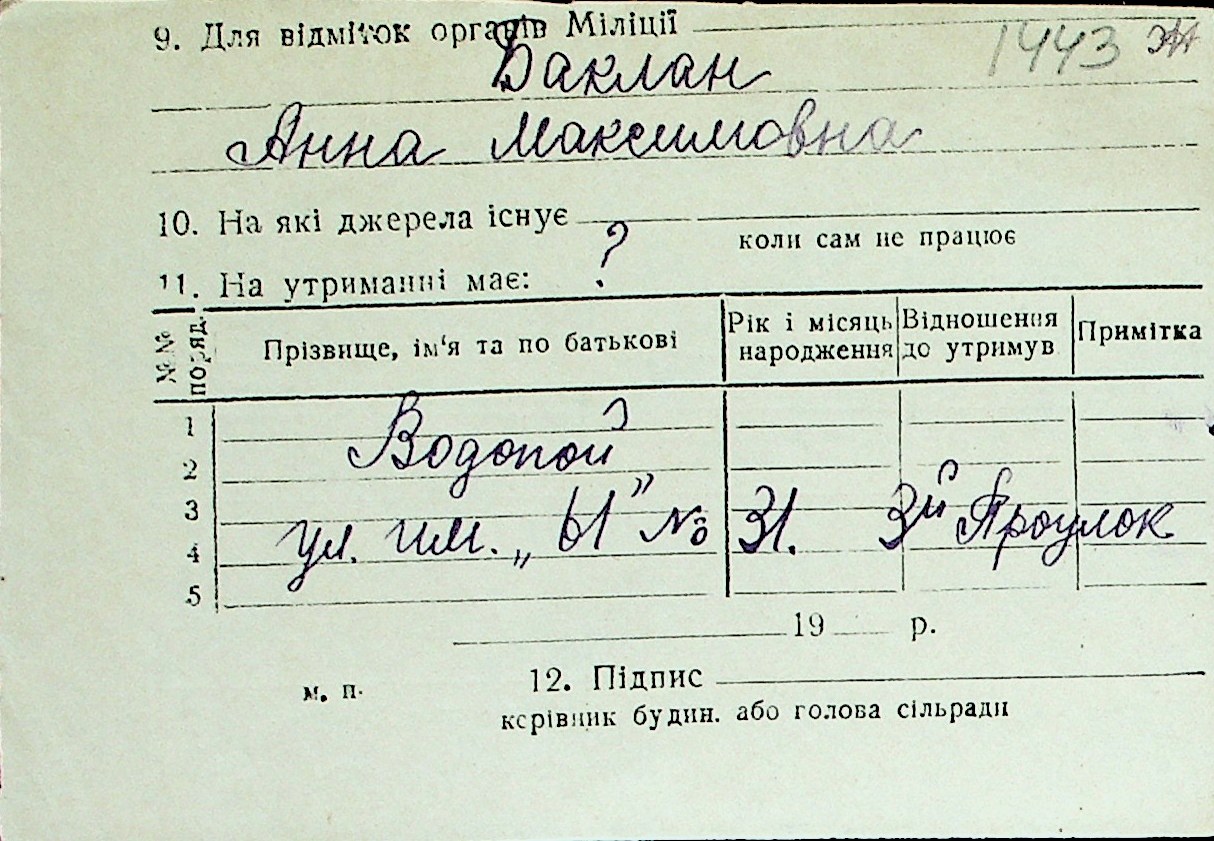 9. Для відміток органів Міліції
1443 Ж
Баклан
Анна Максимовна
10. На які джерела існує
коли сам не працює
11. На утриманні має: ?
№№ поряд.
Прізвище, ім'я та по батькові
Рік і місяць народження
Відношення до утримув
Примітка
1
Водопой
2
3
ул. им. „Ы" № 31. 3й Проулок
4
5
19 р.
м. п.
12. Підпис
керівник будин. або голова сільради